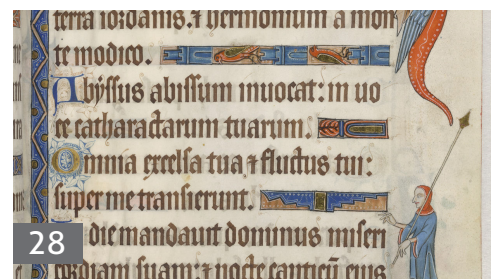 terra iordanis. ⁊ hermonium a mon
te modico.
Abyssus abissum inuocat: in uo
ce catharactarum tuarum.
Omnia excelsa tua ⁊ fluctus tui:
super me transierunt.
die mandauit dominus miseri
cordiam suam: ⁊ nocte canticū eius
28